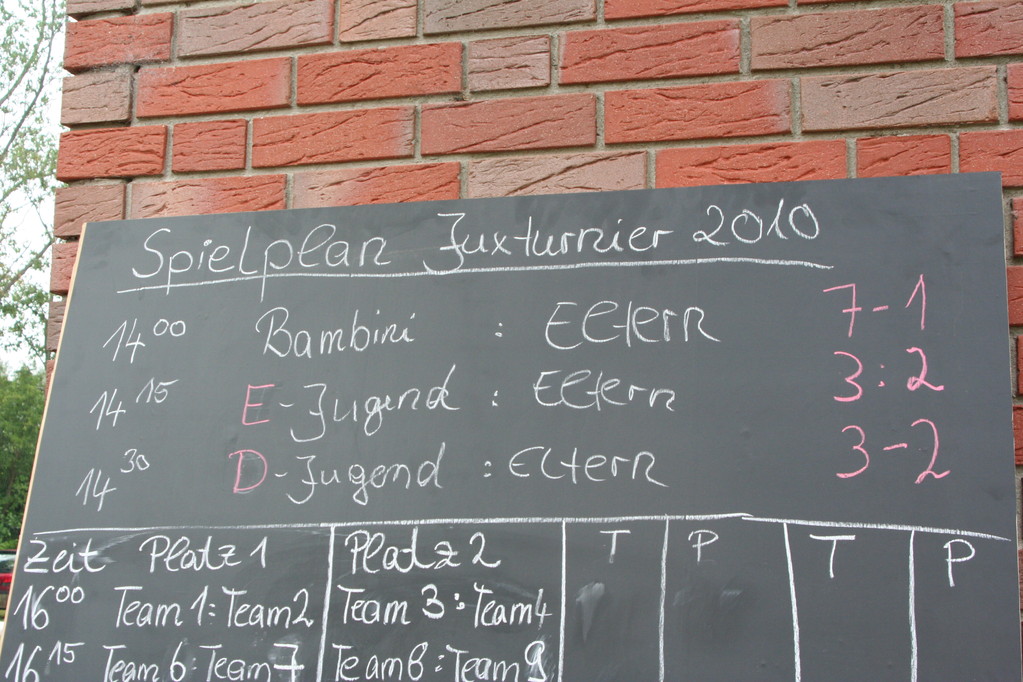 Spielplan Juxturnier 2010
14 00 Bambini : Eltern 7-1
14 15 E-Jugend : Eltern 3:2
14 30 D-Jugend : Eltern 3-2
Zeit Platz 1 Platz 2 T P T P
16 00 Team 1 : Team 2 Team 3 : Team 4
16 15 Team 6 : Team 7 Team 8 : Team 9